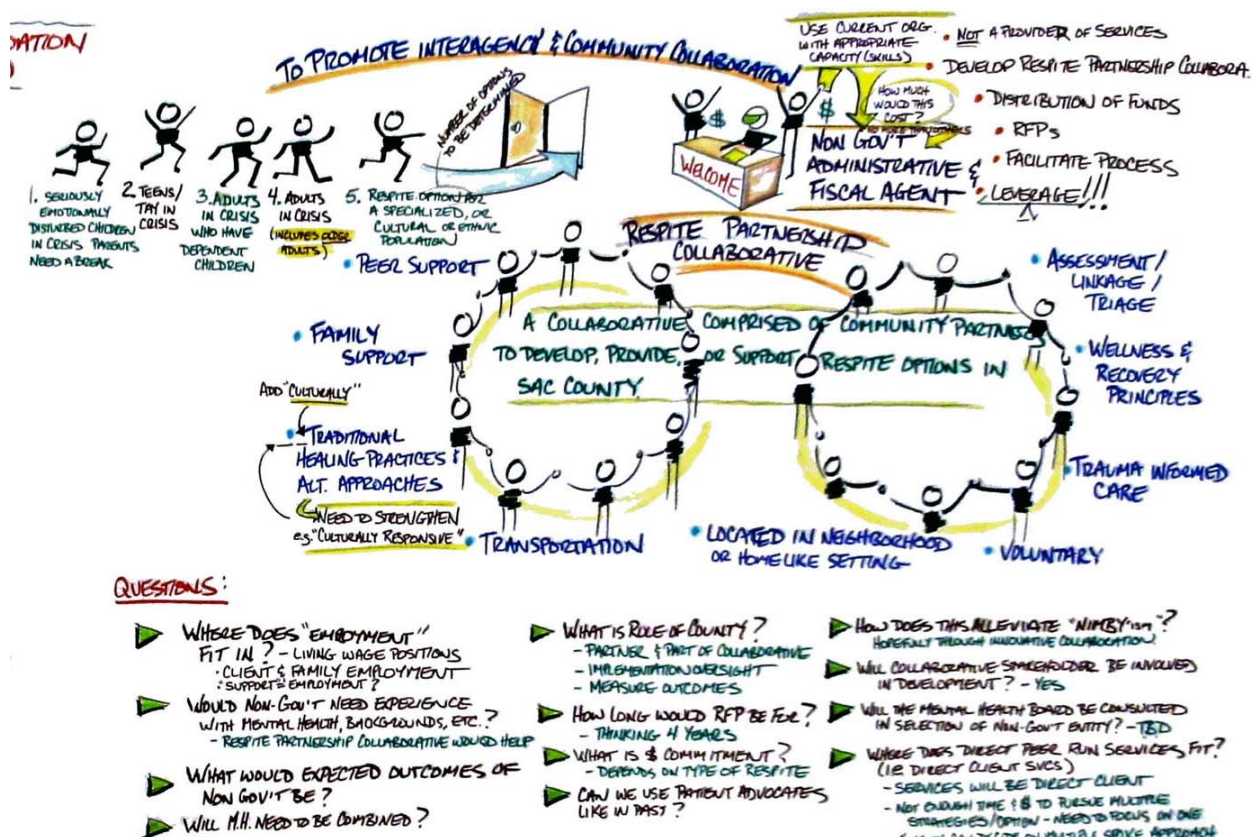 TO PROMOTE INTERAGENCY & COMMUNITY COLLABORATION
NUMBER OF OPTIONS
TO BE DETERMINED
WELCOME
$
USE CURRENT ORG.
WITH APPROPRIATE
CAPACITY (SKILLS)
HOW MUCH
WOULD THIS
COST?
$
NON GOV'T
ADMINISTRATIVE &
FISCAL AGENT
• NOT A PROVIDER OF SERVICES
• DEVELOP RESPITE PARTNERSHIP COLLABORA.
• DISTRIBUTION OF FUNDS
• RFPs
• FACILITATE PROCESS
• LEVERAGE!!!
1. SERIOUSLY
EMOTIONALLY
DISTURBED CHILDREN
IN CRISIS PARENTS
NEED A BREAK
2. TEENS/
TAY IN
CRISIS
3. ADULTS
IN CRISIS
WHO HAVE
DEPENDENT
CHILDREN
4. ADULTS
IN CRISIS
(INCLUDES OLDER
ADULTS)
5. RESPITE OPTION FOR
A SPECIALIZED, OR
CULTURAL OR ETHNIC
POPULATION
RESPITE PARTNERSHIP
COLLABORATIVE
A COLLABORATIVE COMPRISED OF COMMUNITY PARTNERS
TO DEVELOP, PROVIDE, OR SUPPORT RESPITE OPTIONS IN
SAC COUNTY
• PEER SUPPORT
• FAMILY
SUPPORT
ADD "CULTURALLY"
• TRADITIONAL
HEALING PRACTICES &
ALT. APPROACHES
NEED TO STRENGTHEN
e.g. "CULTURALLY RESPONSIVE"
• TRANSPORTATION
• LOCATED IN NEIGHBORHOOD
OR HOMELIKE SETTING
• VOLUNTARY
• TRAUMA INFORMED
CARE
• WELLNESS &
RECOVERY
PRINCIPLES
• ASSESSMENT/
LINKAGE/
TRIAGE
QUESTIONS:
WHERE DOES "EMPOYMENT"
FIT IN? - LIVING WAGE POSITIONS
• CLIENT & FAMILY EMPLOYMENT
• SUPPORT = EMPLOYMENT?
WOULD NON-GOV'T NEED EXPERIENCE
WITH MENTAL HEALTH, BACKGROUNDS, ETC.?
- RESPITE PARTNERSHIP COLLABORATIVE WOULD HELP
WHAT WOULD EXPECTED OUTCOMES OF
NON GOV'T BE?
WILL M.H. NEED TO BE COMBINED?
WHAT IS ROLE OF COUNTY?
- PARTNER & PART OF COLLABORATIVE
- IMPLEMENTATION OVERSIGHT
- MEASURE OUTCOMES
HOW LONG WOULD RFP BE FOR?
- THINKING 4 YEARS
WHAT IS $ COMMITMENT?
- DEPENDS ON TYPE OF RESPITE
CAN WE USE PATIENT ADVOCATES
LIKE IN PAST?
HOW DOES THIS ALLEVIATE "NIMBY'ism"?
HOPEFULLY THROUGH INNOVATIVE COLLABORATION
WILL COLLABORATIVE STAKEHOLDER BE INVOLVED
IN DEVELOPMENT? - YES
WILL THE MENTAL HEALTH BOARD BE CONSULTED
IN SELECTION OF NON-GOV'T ENTITY? - TBD
WHERE DOES DIRECT PEER RUN SERVICES FIT?
(I.E. DIRECT CLIENT SVCS)
- SERVICES WILL BE DIRECT CLIENT
- NOT ENOUGH TIME & $ TO PURSUE MULTIPLE
STRATEGIES/OPTION - NEED TO FOCUS ON ONE